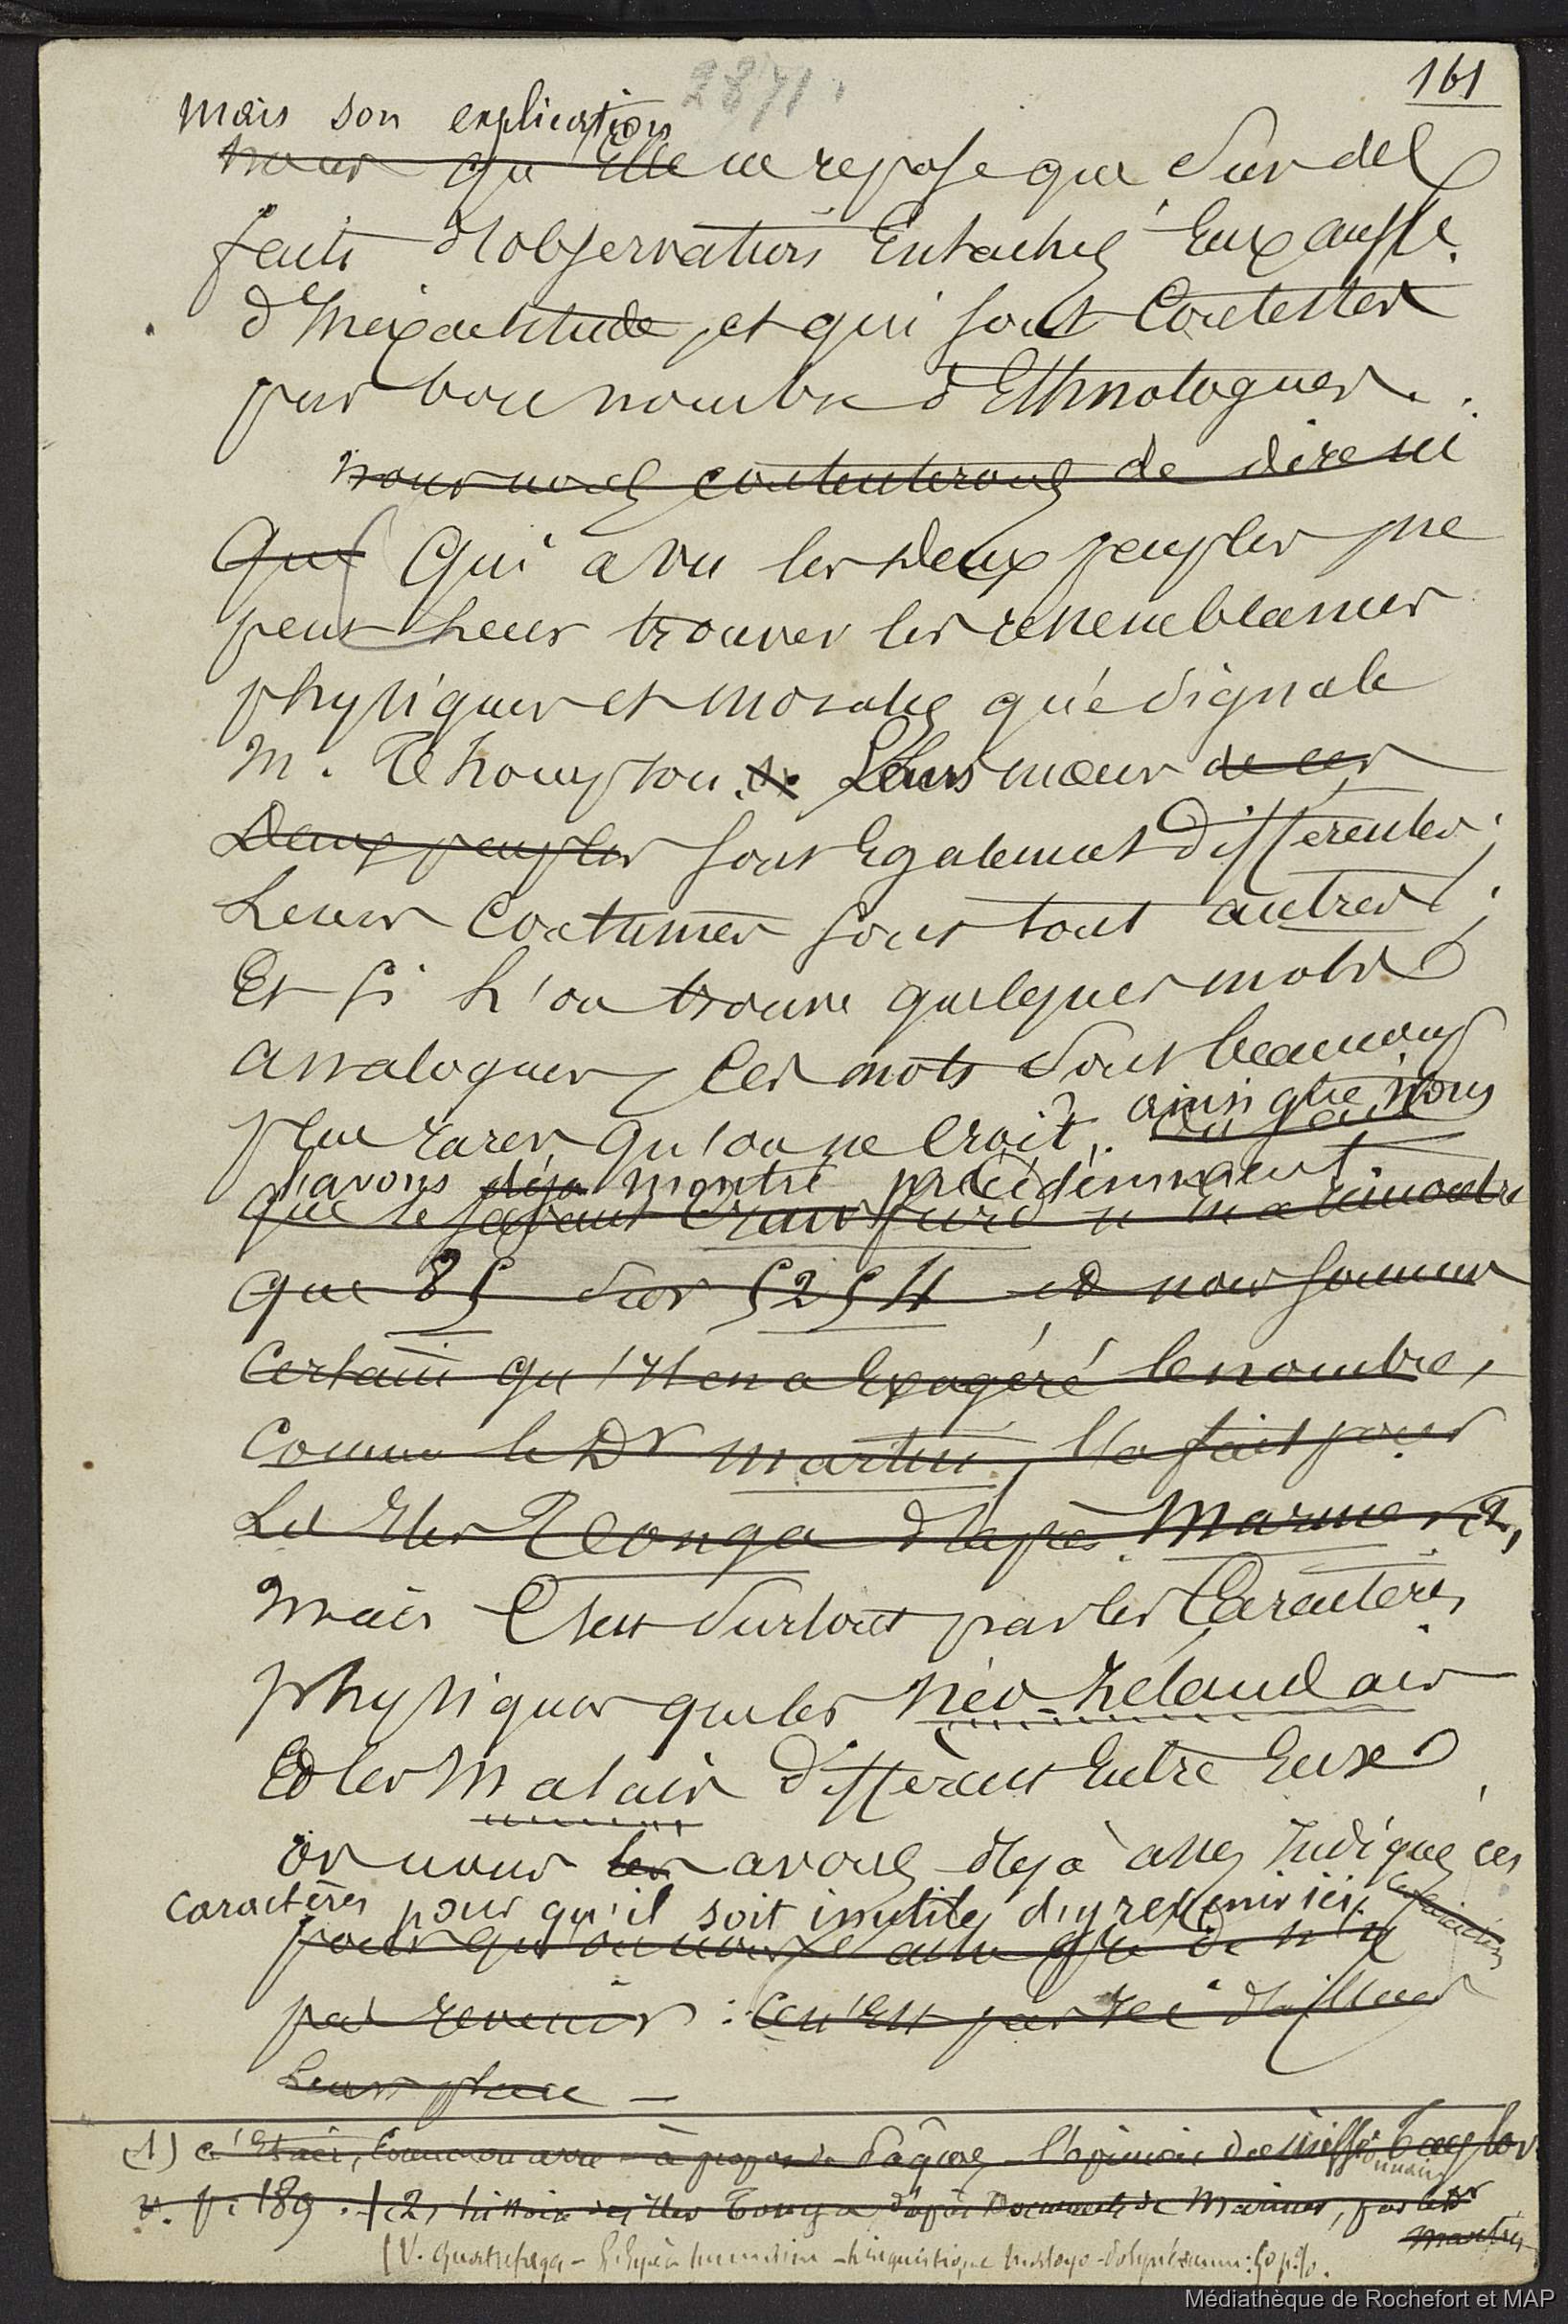 161
2871.
mais son explication
nous qu'Elle ne repose que sur des
faits d'observations Entachés Eux aussi
d'Inexactitude, et qui sont Contestés
par bon nombre d'Ethnologues.
nous nous contenterons de dire ici
Que Qui a vu les deux peuples ne
peut Leur trouver les ressemblances
physiques et morales que signale
M. Thompson. Leurs mœurs de ces
Deux peuples sont Egalement Différentes;
Leurs Coutumes sont tout autres;
Et si L'on trouve quelques mots
analogues, Ces mots sont beaucoup
plus rares qu'on ne Croit, ainsi que nous
l'avons déja montré précédemment.
que le savant Crawfurd n'en a rencontré
que 85 sur 5254 et nous sommes
Certain qu'Il en a Exagéré le nombre,
Comme le Dr Martin, l'a fait pour
Les Iles Tonga d'après Mariner (2,
Mais C'est surtout par les Caractères
physiques que les Néo-Zélandais
Et les Malais Diffèrent Entre Eux
or nous les avons déjà assez Indiqué ces
caractères pour qu'il soit inutile d'y revenir ici.
pour qu'on nous de n'y
pas revenir : Ce n'Est pas Ici d'ailleurs
Leur place —
(1) C'Etait, Comme on verra à propos de l'opinion du missionnaire Taylor
v. p. 189. (2, histoire des Iles Tonga d'après Documents de Mariner, par le Dr
Martin
(V. Quatrefages - L'Espèce humaine - Linguistique Malayo-Polynésienne:
Médiathèque de Rochefort et MAP